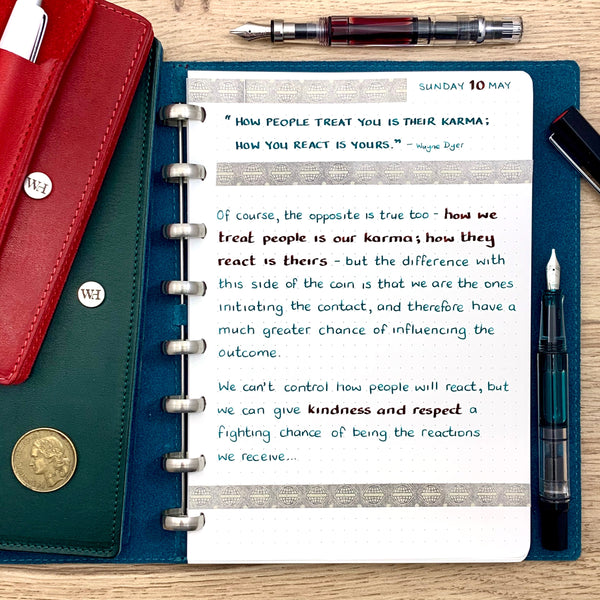 SUNDAY 10 MAY
"HOW PEOPLE TREAT YOU IS THEIR KARMA;
HOW YOU REACT IS YOURS." - Wayne Dyer
Of course, the opposite is true too - how we
treat people is our karma; how they
react is theirs - but the difference with
this side of the coin is that we are the ones
initiating the contact, and therefore have a
much greater chance of influencing the
outcome.
We can't control how people will react, but
we can give kindness and respect a
fighting chance of being the reactions
we receive...
WH
WH